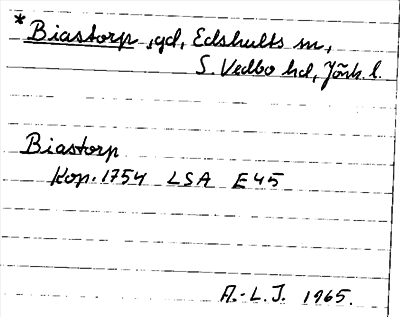 * Biastorp, gd, Edshults sn,
S. Vedbo hd, Jönk. l.
Biastorp
Kop. 1754 LSA E45
A.-L.J. 1965.